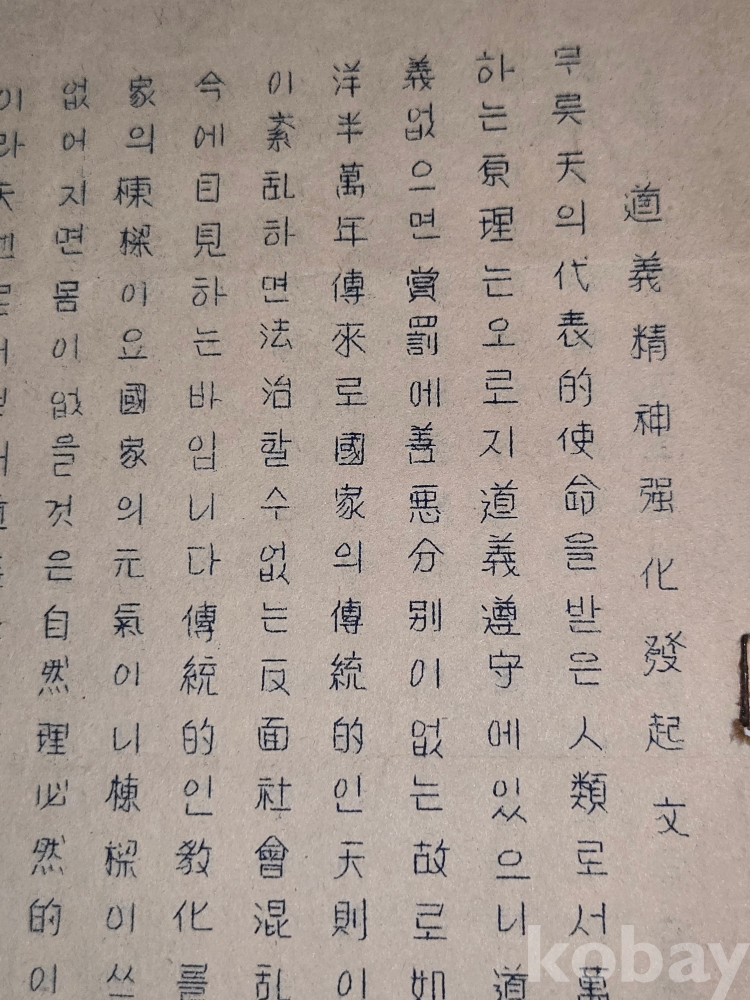 道義精神强化發起文
무릇天의代表的使命을받은人類로서萬
하는原理는오로지道義遵守에있으니道
義없으면賞罰에善悪分別이없는故로如
洋半萬年傳來로國家의傳統的인天則이
이紊乱하면法治할수없는反面社會混乱
今에目見하는바임니다傳統的인教化를
家의棟樑이요國家의元氣이니棟樑이쓰
없어지면몸이없을것은自然理必然的이
이라天
kobay